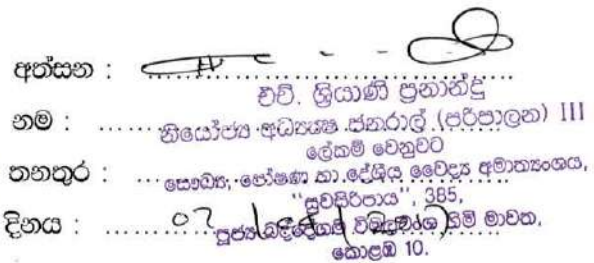 අත්සන :
එච්. ශ්‍රියාණි ප්‍රනාන්දු
නම : නියෝජ්‍ය අධ්‍යක්ෂ ජනරාල් (පරිපාලන) III
ලේකම් වෙනුවට
තනතුර : සෞඛ්‍ය, පෝෂණ හා දේශීය වෛද්‍ය අමාත්‍යංශය,
"සුවසිරිපාය", 385,
දිනය : පූජ්‍ය බද්දේගම විමලවංශ හිමි මාවත,
කොළඹ 10.